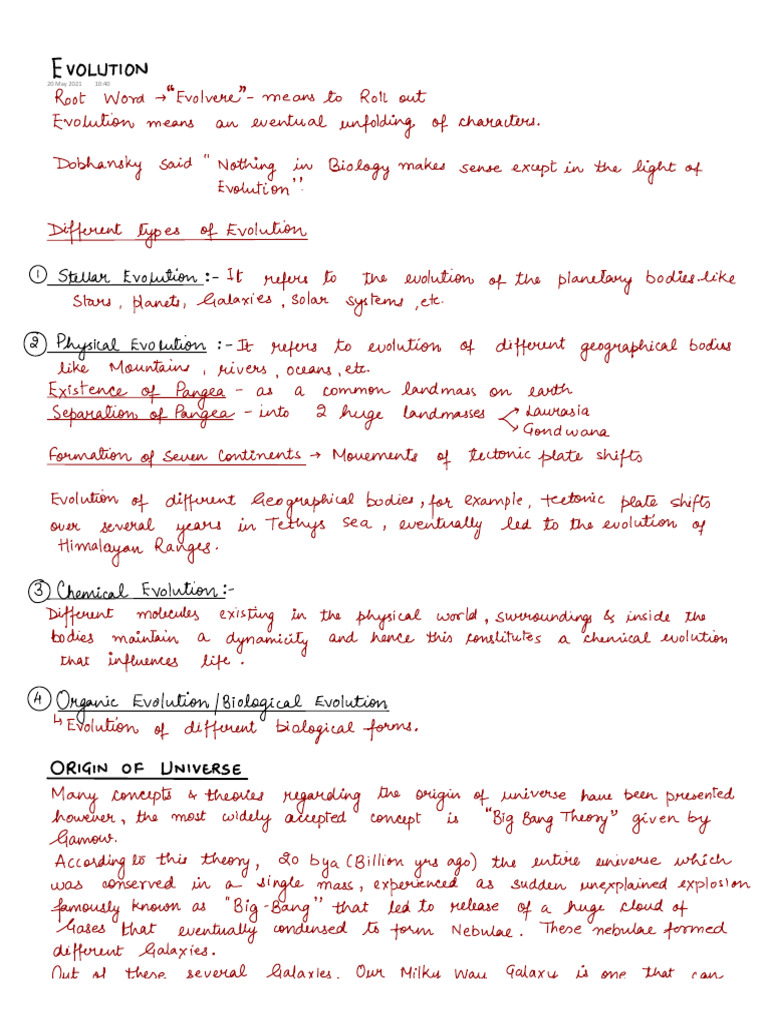 EVOLUTION
20 May 2021 10:40
Root Word → "Evolvere" - means to Roll out
Evolution means an eventual unfolding of characters.
Dobhansky said "Nothing in Biology makes sense except in the light of
Evolution".
Different types of Evolution
① Stellar Evolution :- It refers to the evolution of the planetary bodies like
Stars, planets, Galaxies, solar systems, etc.
② Physical Evolution :- It refers to evolution of different geographical bodies
like Mountains, rivers, oceans, etc.
Existence of Pangea - as a common landmass on earth
Separation of Pangea - into 2 huge landmasses Laurasia
Gondwana
Formation of Seven Continents → Movements of tectonic plate shifts
Evolution of different Geographical bodies, for example, tectonic plate shifts
over several years in Tethys Sea, eventually led to the evolution of
Himalayan Ranges.
③ Chemical Evolution :-
Different molecules existing in the physical world, surroundings & inside the
bodies maintain a dynamicity and hence this constitutes a chemical evolution
that influences life.
④ Organic Evolution/Biological Evolution
↳ Evolution of different biological forms.
ORIGIN OF UNIVERSE
Many concepts & theories regarding the origin of universe have been presented
however, the most widely accepted concept is "Big Bang Theory" given by
Gamow.
According to this theory, 20 bya (Billion yrs ago) the entire universe which
was conserved in a single mass, experienced as sudden unexplained explosion
famously known as "Big-Bang" that led to release of a huge cloud of
Gases that eventually condensed to form Nebulae. These nebulae formed
different Galaxies.
Out of these several Galaxies. Our Milky Way Galaxy is one that can